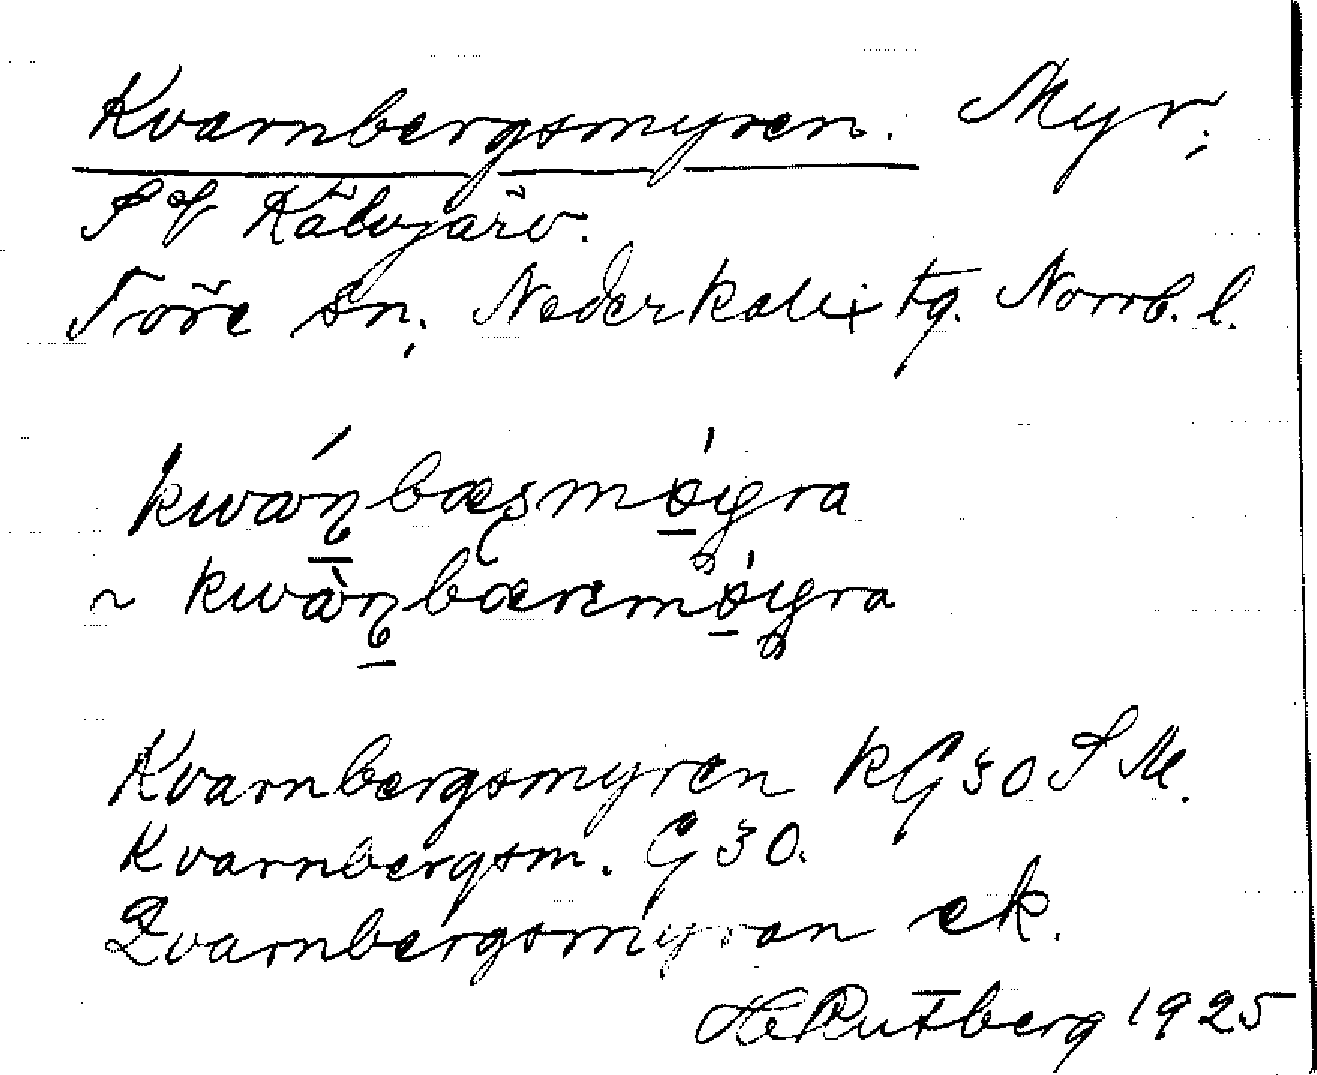 Kvarnbergsmyren. Myr,
S of Kälvjärv.
Töre sn, Nederkalix tg. Norrb. l.
kwánbæsmøyra
~ kwànbæremøyra
Kvarnbergsmyren KG30 S M.
Kvarnbergsm. G30.
Qvarnbergsmyran ek.
Rutberg 1925